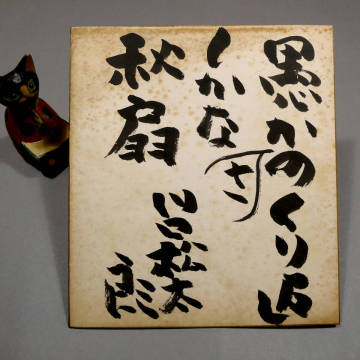 愚かさのくり返
しかな
秋扇
川口松太
郎